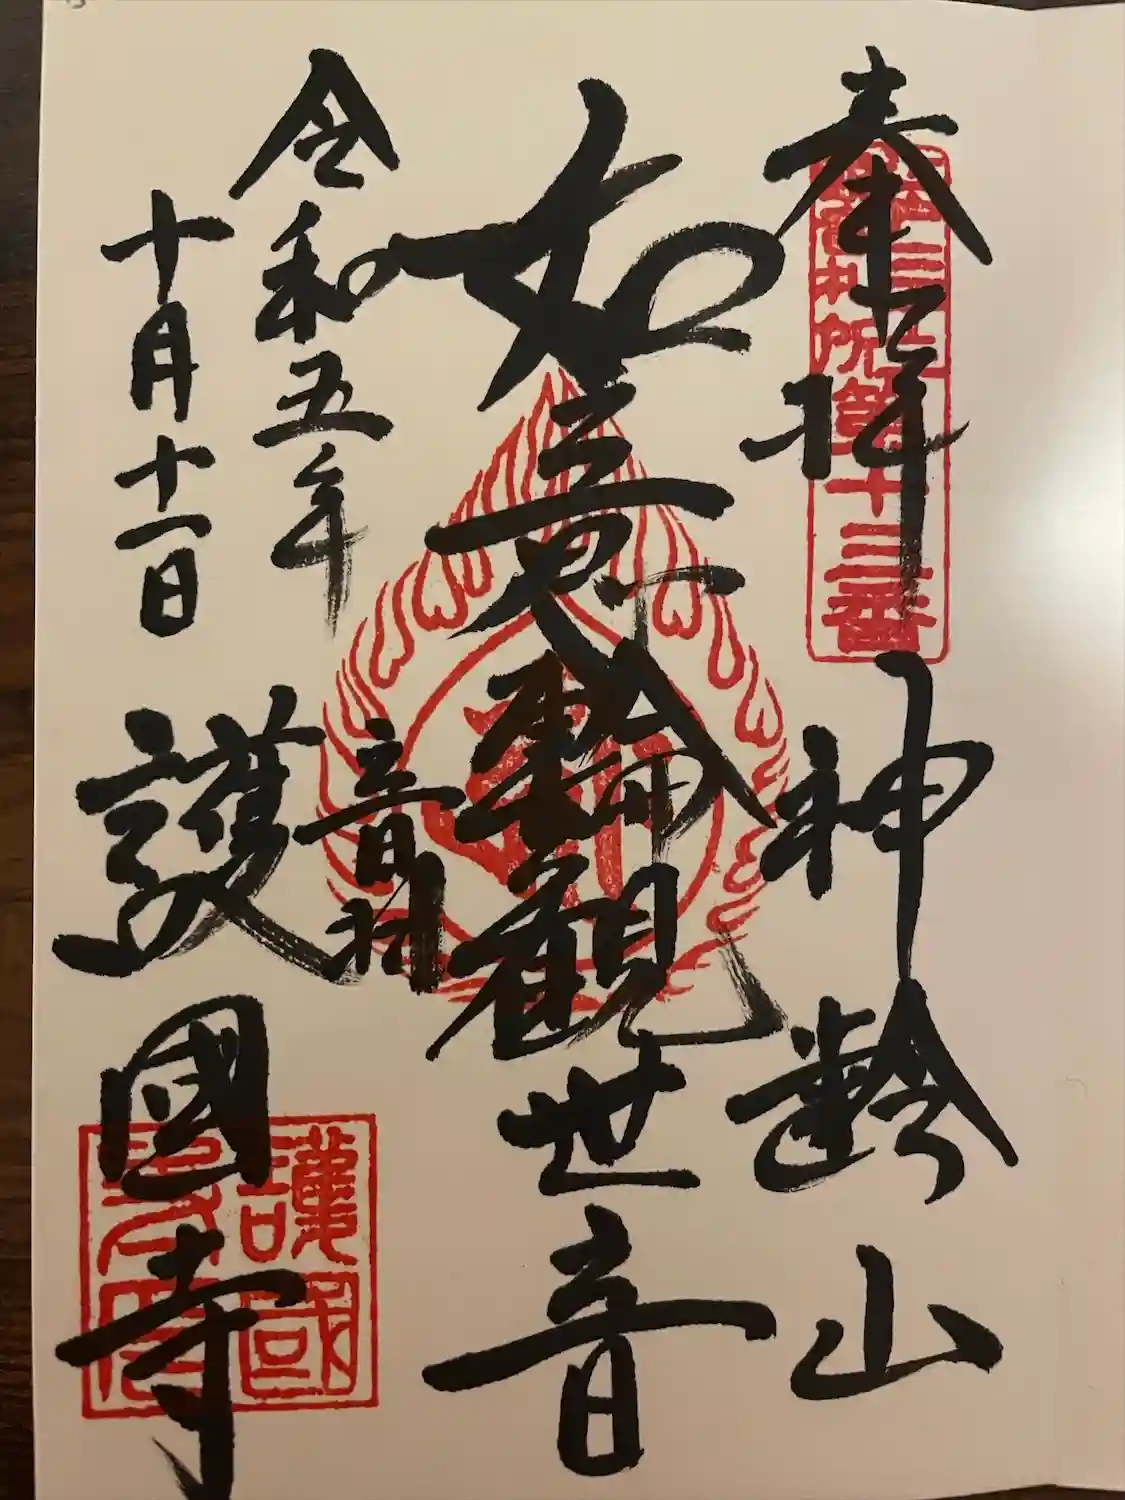 奉拝
神齢山
第十三番
如意輪観世音
令和五年
十月十一日
音羽
護國寺
護國